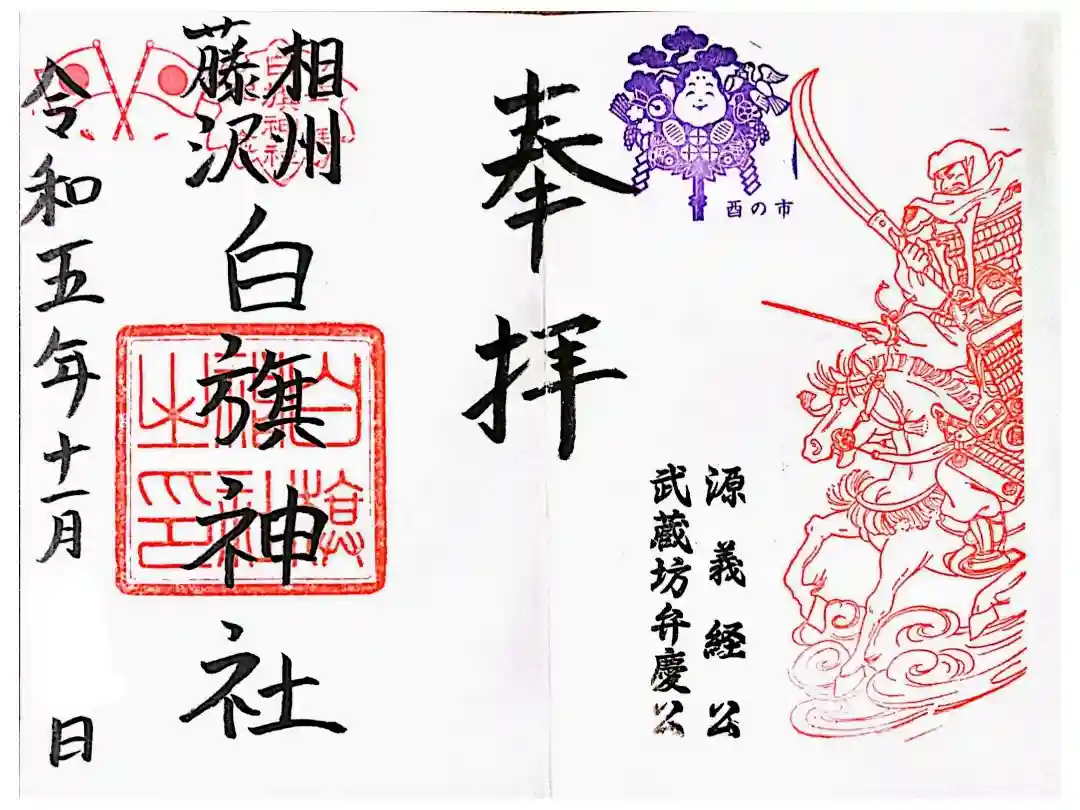 酉の市
源義経公
武蔵坊弁慶公
奉拝
相州
藤沢
白旗神社
令和五年十一月 日